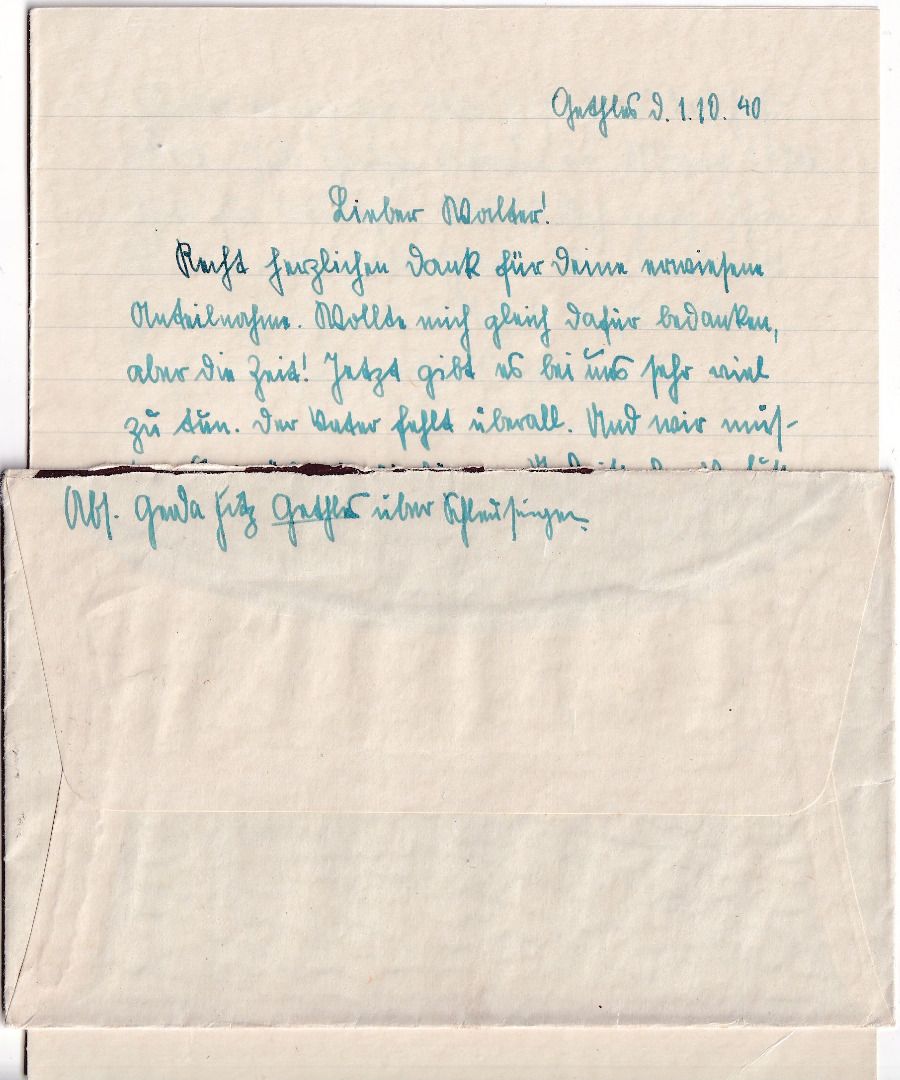 Gethles d. 1.10.40
Lieber Walter!
Recht herzlichen Dank für Deine erwiesene
Anteilnahme. Wollte mich gleich dafür bedanken,
aber die Zeit! Jetzt gibt es bei uns sehr viel
zu tun. Der Vater fehlt überall. Und wir müs-
Abs. Gerda Gethles über Schleusingen.